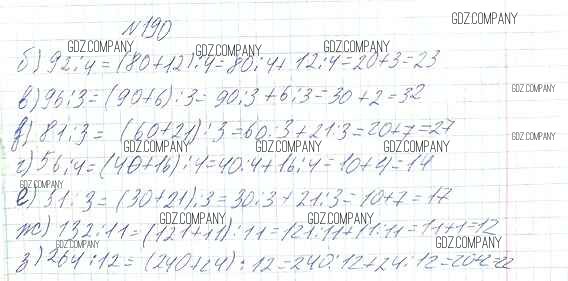 GDZ.COMPANY
№190
GDZ.COMPANY GDZ.COMPANY GDZ.COMPANY
б) 92:4=(80+12):4=80:4+12:4=20+3=23
GDZ.COMPANY
в) 96:3=(90+6):3=90:3+6:3=30+2=32
в) 81:3=(60+21):3=60:3+21:3=20+7=27
GDZ.COMPANY
GDZ.COMPANY GDZ.COMPANY GDZ.COMPANY
г) 56:4=(40+16):4=40:4+16:4=10+4=14
GDZ.COMPANY
е) 51:3=(30+21):3=30:3+21:3=10+7=17
GDZ.COMPANY GDZ.COMPANY
ж) 132:11=(121+11):11=121:11+11:11=11+1=12
GDZ.COMPANY GDZ.COMPANY
з) 264:12=(240+24):12=240:12+24:12=20+2=22